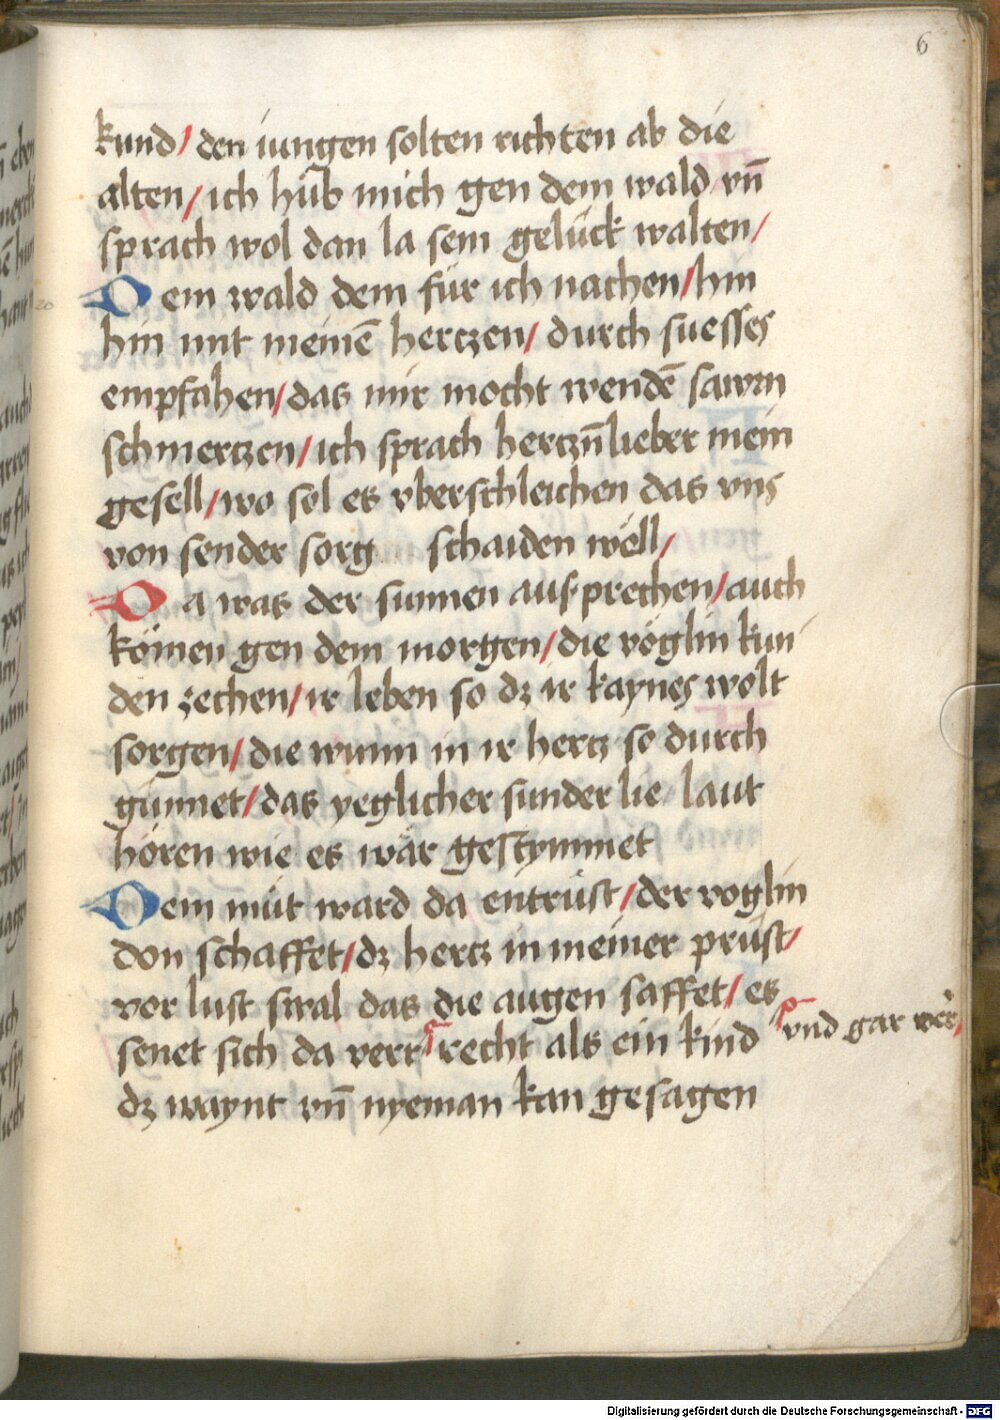 6
kund/ den iungen solten richten ab die
alten/ ich hůb mich gen dem wald vn̄
sprach wol dan la sein gelück walten/
Dem wald dem für ich nachen/ hin
hin mit meinē hertzen/ durch suesses
empfahen/ das mir mocht wendē sawrn
schmertzen/ ich sprach hertzn̄lieber mein
gesell/ wo sol es vberschleichen das vns
von sender sorg schaiden wöll/
Da was der sunnen aufprechen/ auch
kömen gen dem morgen/ die vöglin kun
den zechen/ ir leben so dz ir kaynes wolt
sorgen/ die wunn in ir hertz so durch
günnet/ das yeglicher sunder lie laut
hören wie es wär gestymmet
Dem müt ward da entrüst/ der voglin
don schaffet/ dz hertz in meiner prüst/
vor lust swal das die augen saffet/ es
senet sich da verr recht als ein kind vnd gar ver̄/
dz waynt vn̄ nyeman kan gesagen
20
Digitalisierung gefördert durch die Deutsche Forschungsgemeinschaft - DFG